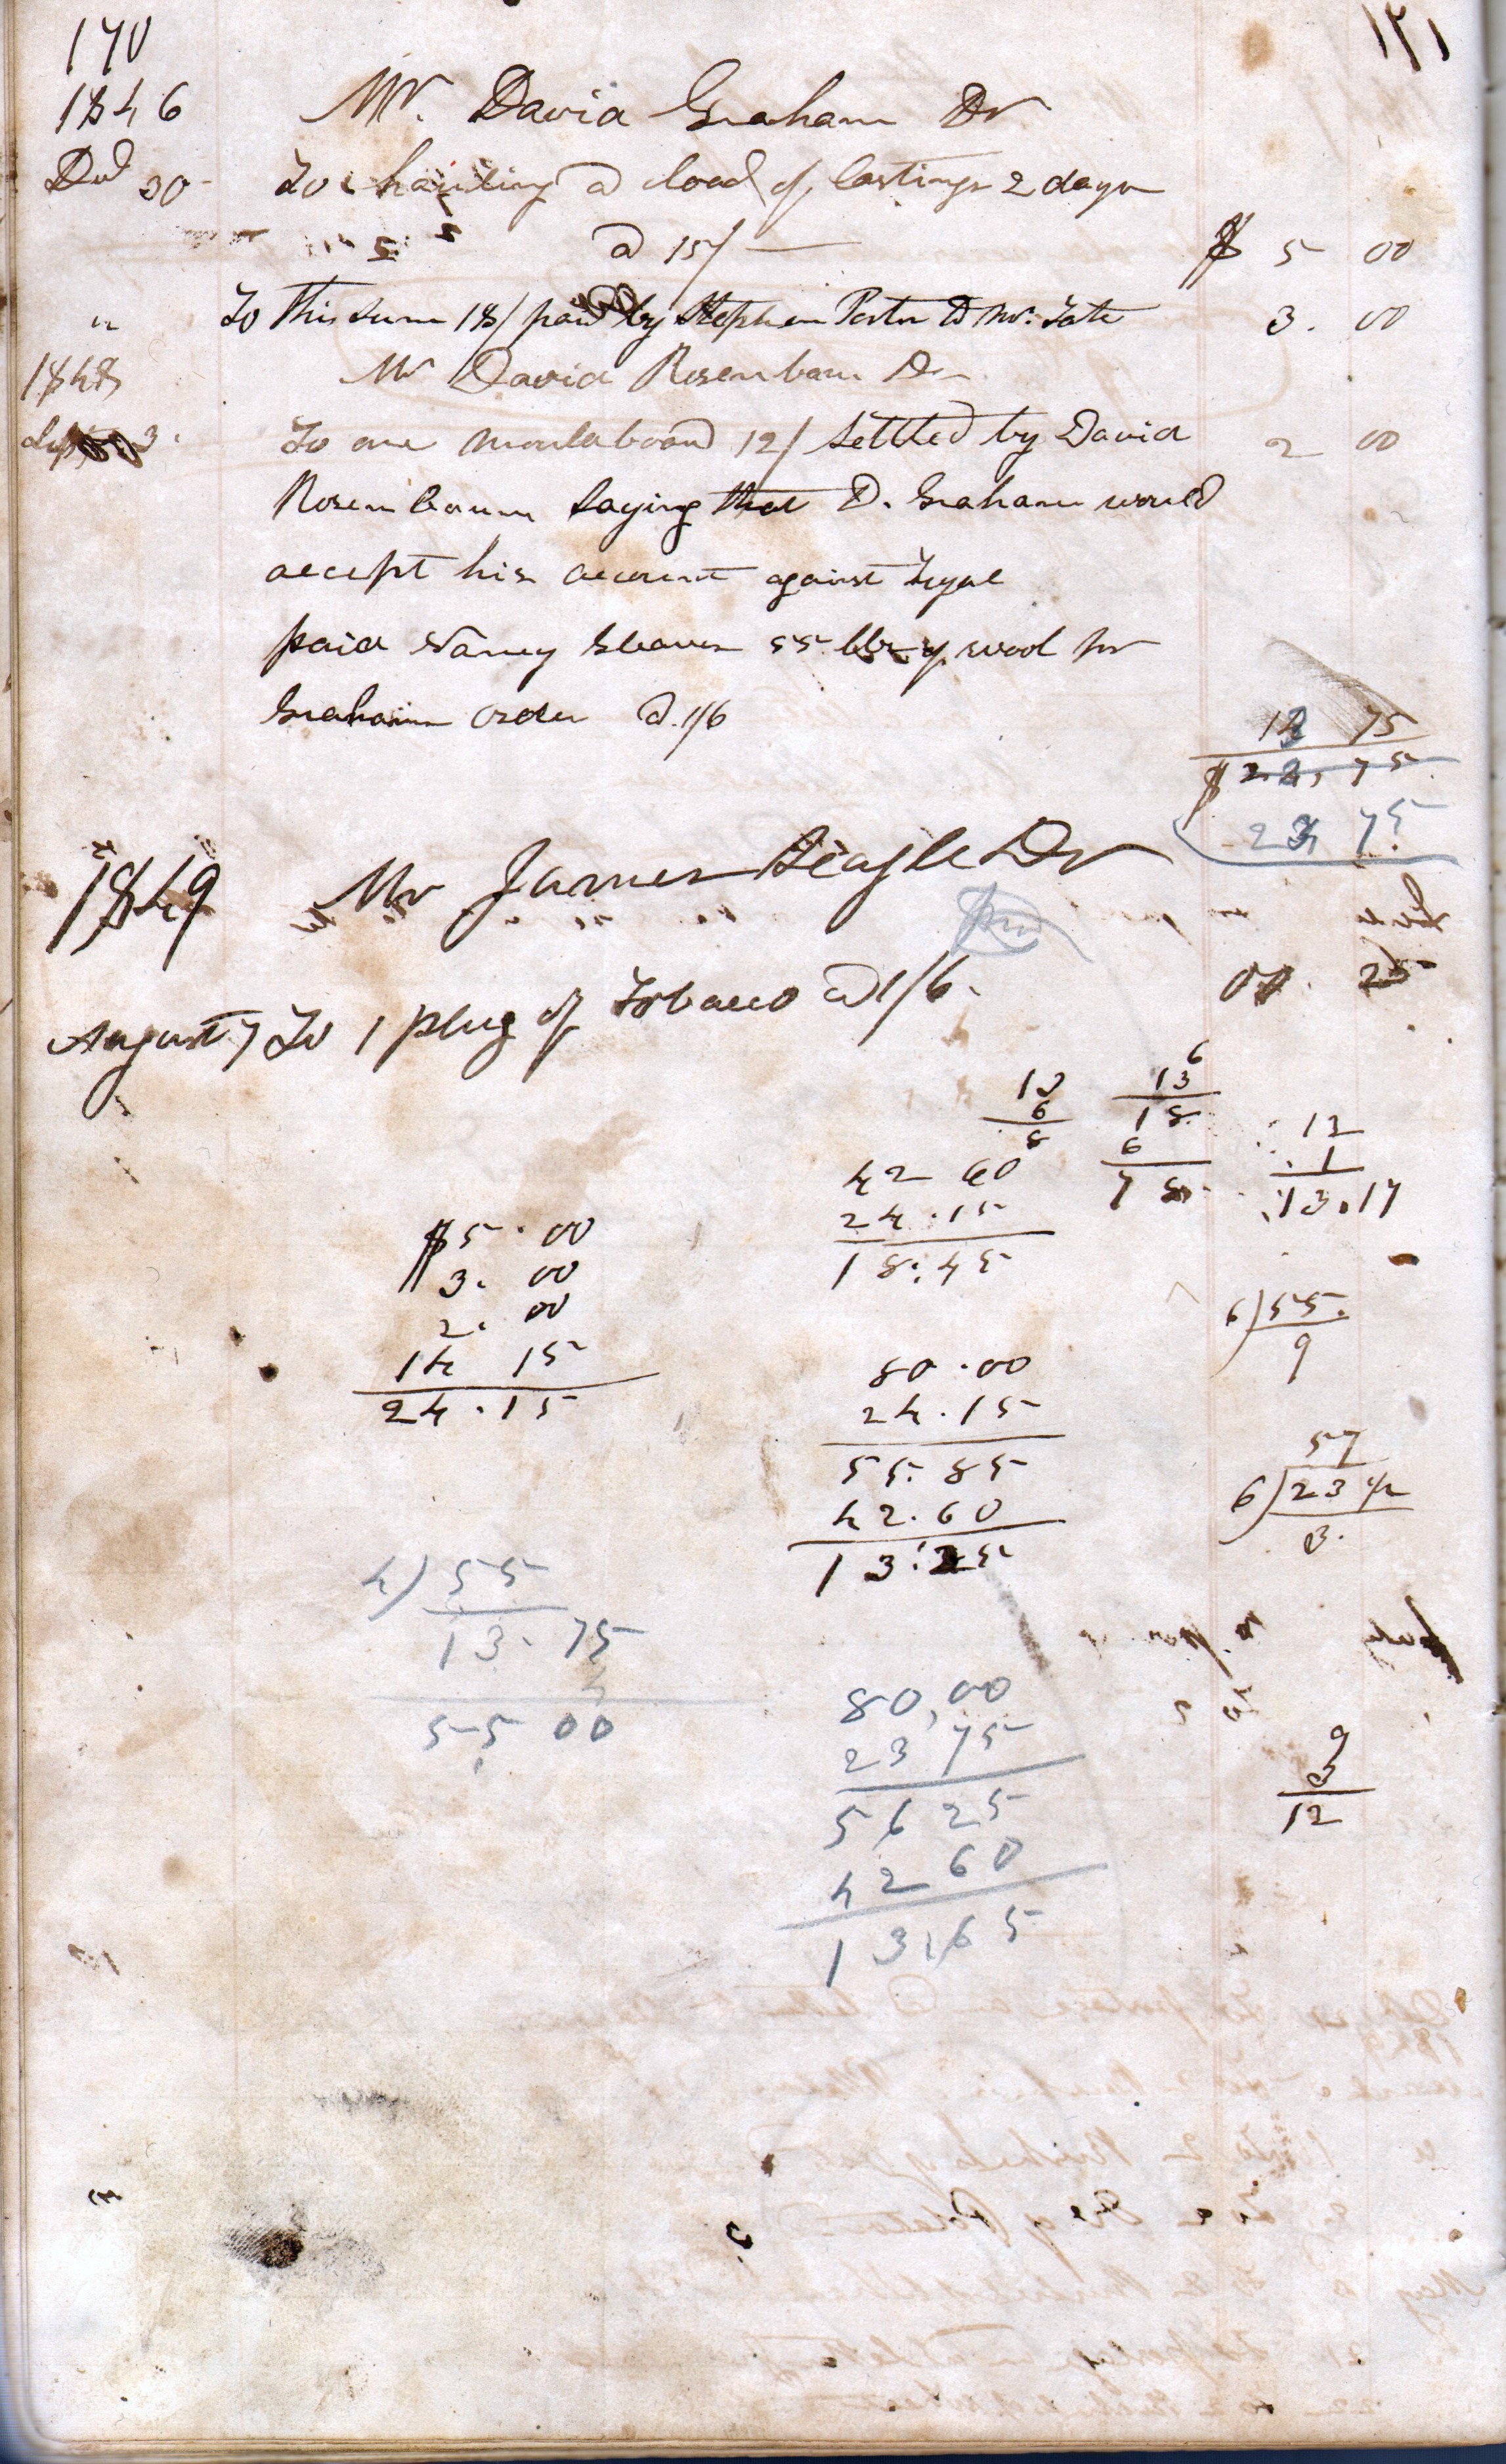 170
1846 Mr. David Graham Dr
Decd 30 To hauling a load of Castings 2 days
a 15/ — $ 5 00
" To this sum 18/ paid by Stephen Porter to Mr. Tate 3. 00
1848 Mr David Rosenbam Dr
Sept 3. To one mouldboard 12/ settled by David 2 00
Rosenbaum saying that D. Graham would
accept his account against
paid Nancy Cleaver 55 lbs of wool pr
Grahams order a 1/6
13 75
$ 23, 75
23 75
1849 Mr James Dr
August 7 To 1 plug of Tobacco a 1/6. 00. 25
6
13
18
6
78
6
8
12
1
13.17
42 60
24.15
18.45
$5.00
3. 00
2. 00
14 15
24.15
6)55.
9
80.00
24.15
55.85
42.60
13.25
57
6)234
3.
4)55
13.75
4
55 00
80,00
23 75
56 25
42 60
13,65
9
3
12